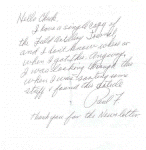 Hello Chuck,
I have a single copy of
the Field Artillery Journal
and I don't know where or
when I got it. Anyway,
I was looking through the
when I was
stuff & found the article
Paul F
Thank you for the Newsletter